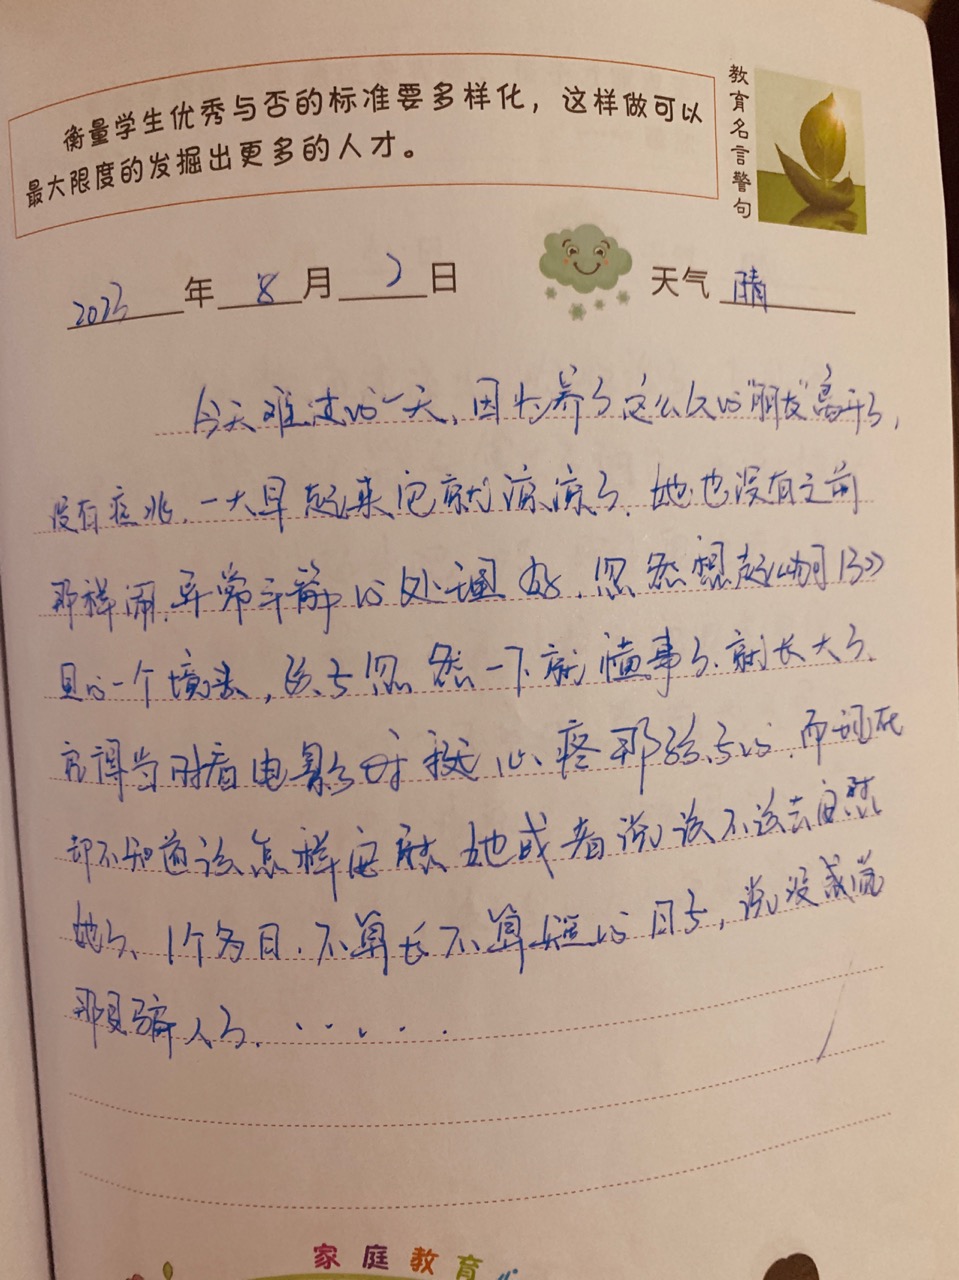 衡量学生优秀与否的标准要多样化，这样做可以
最大限度的发掘出更多的人才。
教育名言警句
2023年8月2日 天气 晴
今天难过的一天，因为养了这么久的"朋友"离开了，
没有症兆，一大早起来它就凉凉了，她也没有之前
那样闹，异常平静的处理好，忽然想起
里的一个境来，孩子忽然一下就懂事了，就长大了，
记得当时看电影时我心疼那孩子的，而现在
却不知道该怎样安慰她或者说该不该去安慰
她了，1个多月，不算长不算短的日子，说没感觉
那是骗人了，······
家庭教育